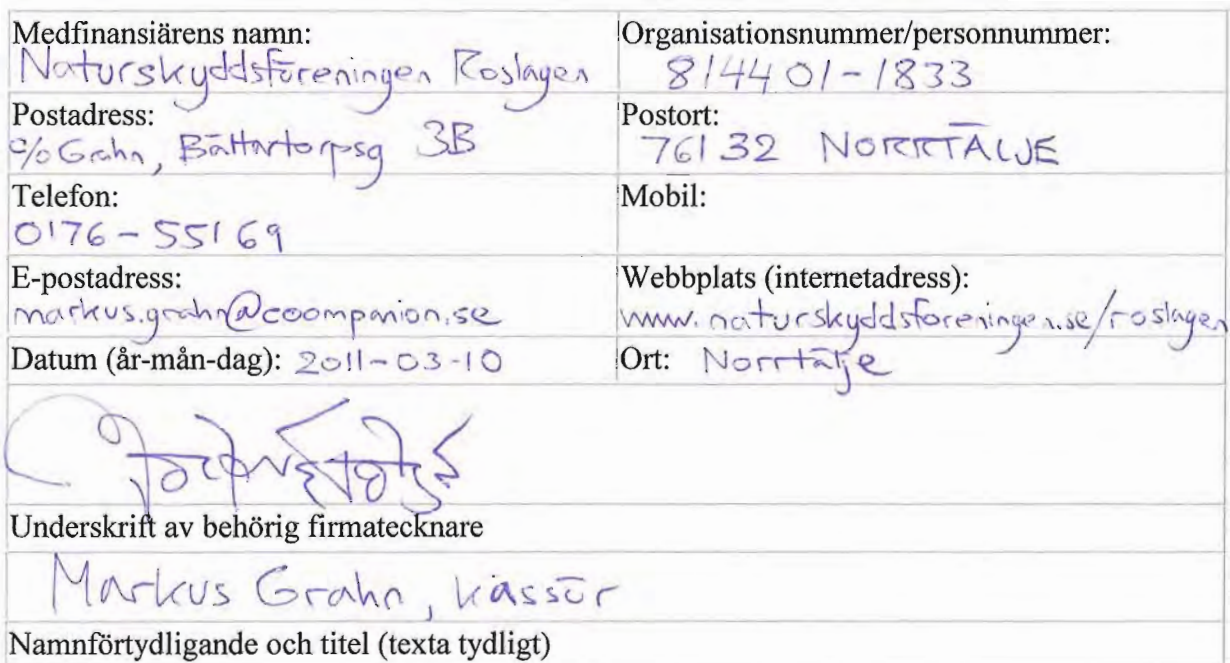 Medfinansiärens namn:
Naturskyddsföreningen Roslagen
Organisationsnummer/personnummer:
814401-1833
Postadress:
c/o Grahn, Bältartorpsg 3B
Postort:
76132 NORRTÄLJE
Telefon:
0176-55169
Mobil:
E-postadress:
markus.grahn@coompanion.se
Webbplats (internetadress):
www.naturskyddsforeningen.se/roslagen
Datum (år-mån-dag): 2011-03-10
Ort: Norrtälje
Underskrift av behörig firmatecknare
Markus Grahn, kassör
Namnförtydligande och titel (texta tydligt)